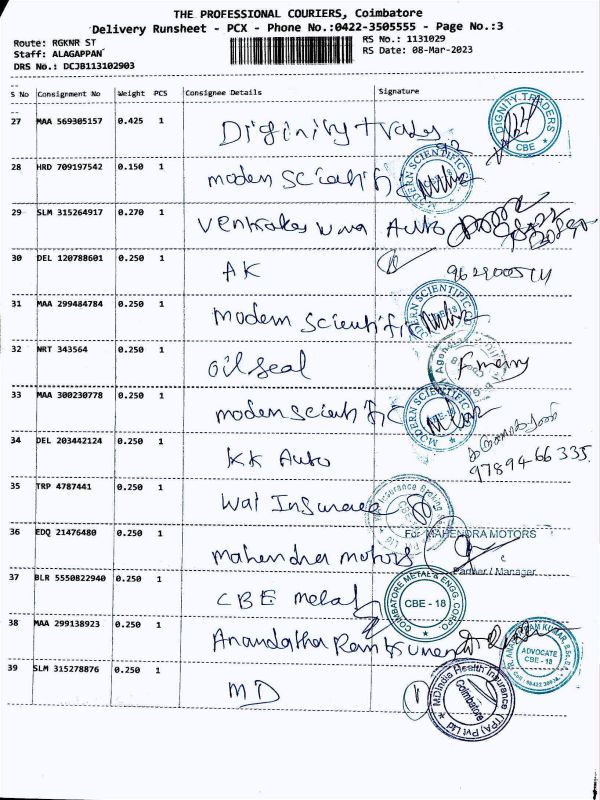 THE PROFESSIONAL COURIERS, Coimbatore
Delivery Runsheet - PCX - Phone No.:0422-3505555 - Page No.:3
Route: RGKNR ST
RS No.: 1131029
Staff: ALAGAPPAN
RS Date: 08-Mar-2023
DRS No.: DCJB113102903
S No Consignment No Weight PCS Consignee Details Signature
27 MAA 569305157 0.425 1 Diginity trades
DIGNITY TRADERS CBE
28 HRD 709197542 0.150 1 modern Scientific
MODERN SCIENTIFIC
29 SLM 315264917 0.270 1 Auto
30 DEL 120788601 0.250 1 AK
31 MAA 299484784 0.250 1 modern Scientific
MODERN SCIENTIFIC CBE-18
32 NRT 343564 0.250 1 oil seal
33 MAA 300230778 0.250 1 modern scientific
MODERN SCIENTIFIC CBE-18
34 DEL 203442124 0.250 1 KK Auto
9789466335
35 TRP 4787441 0.250 1 Wat Insurance
Insurance Broking
36 EDQ 21476480 0.250 1 mahendra motors
For MAHENDRA MOTORS
Partner / Manager
37 BLR 5550822940 0.250 1 CBE metal
COIMBATORE METAL & ENGG. CORPO CBE - 18
38 MAA 299138923 0.250 1
ADVOCATE CBE - 18
39 SLM 315278876 0.250 1 MD
MDIndia Health Insurance (TPA) Pvt Ltd Coimbatore